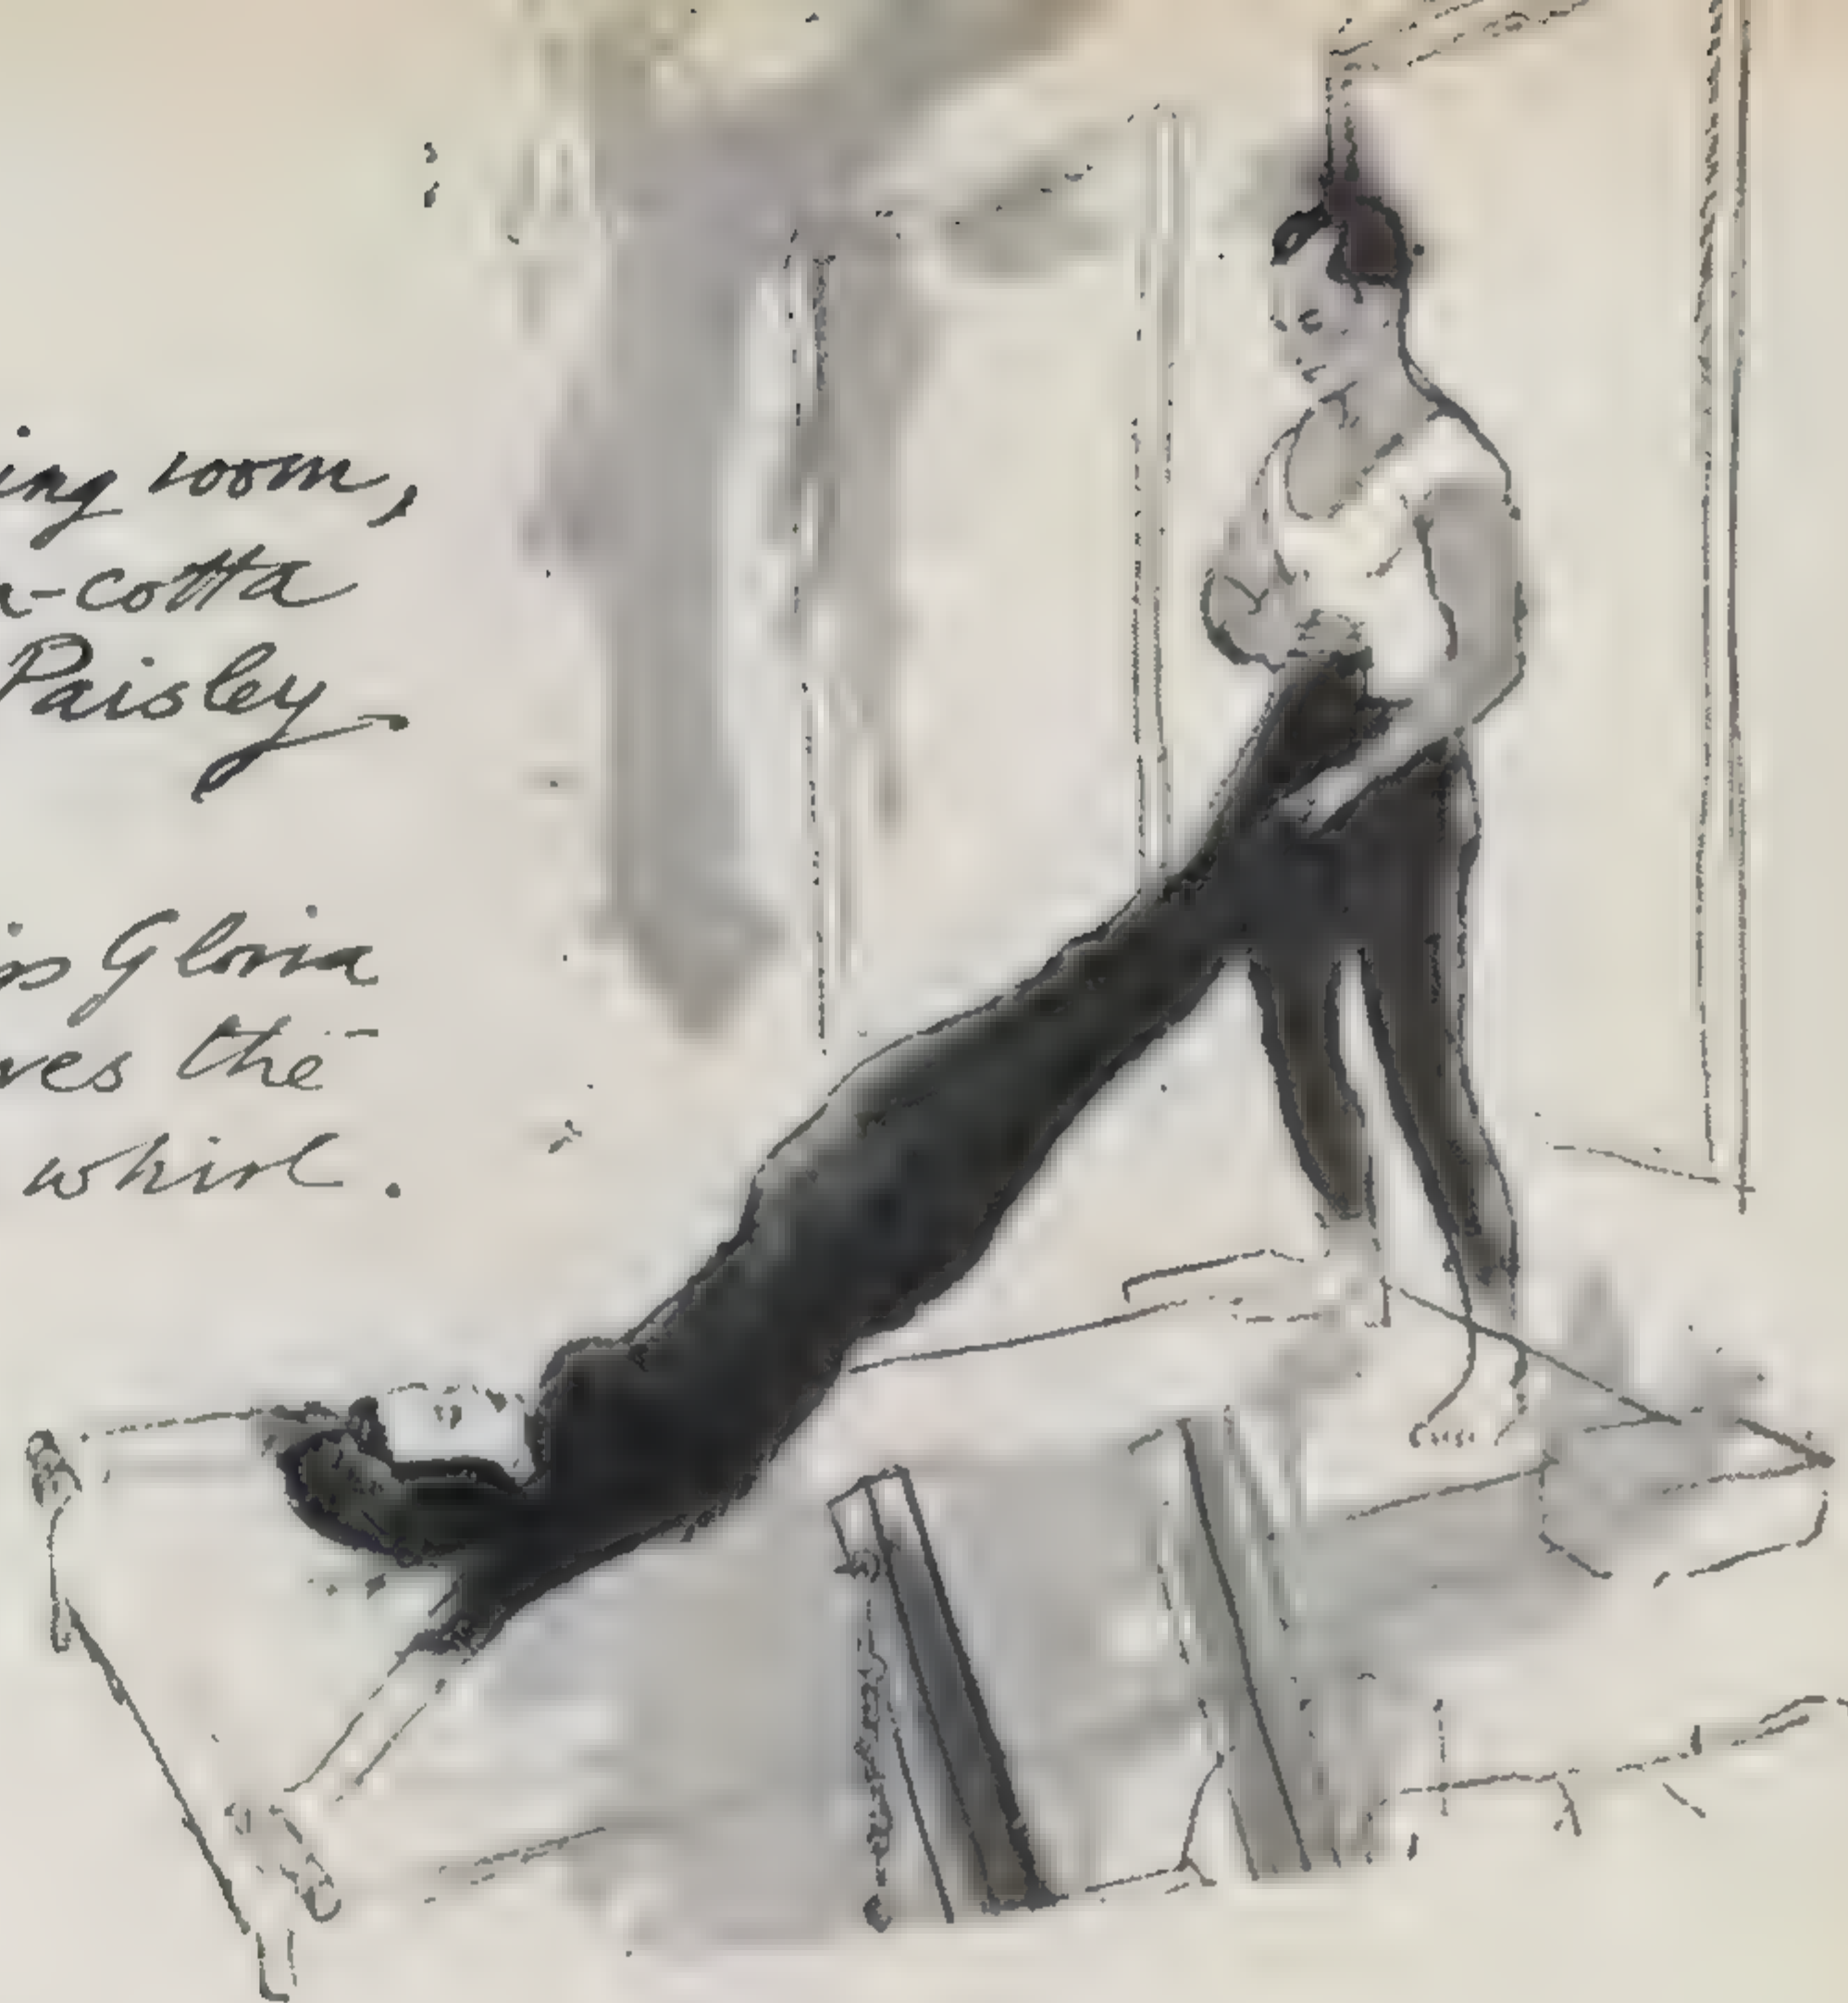 ing room,
-cotta
Paisley
Gloria
the
whirl.